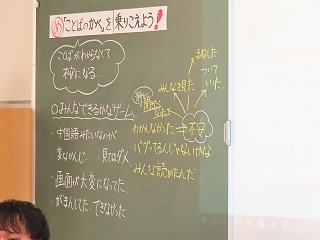 め「ことばのかべ」を乗りこえよう！
ことばがわからなくて
不安になる…
○みんなできるかなゲーム
・中国語みたいなのが
変なかんじ… 見てはダメ
・画面が大変になってた
・がまんしてた できなかった
まねした
ついて
いた
みんなを見た
わかんなかった ⇒ 不安
バグってるんじゃないけど
みんな読めたんだ